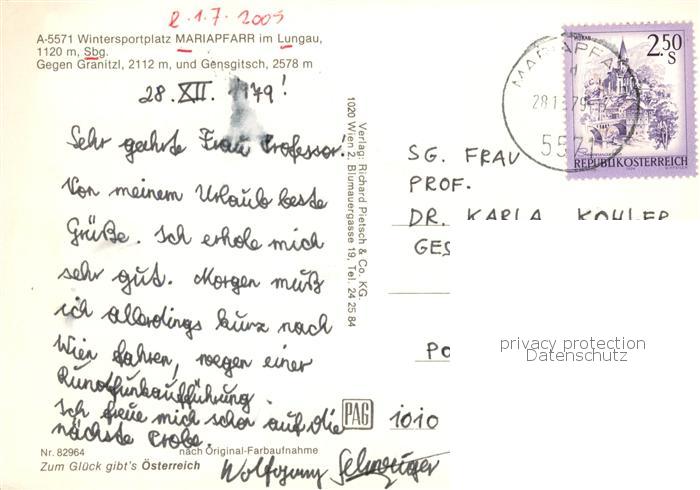 2.1.7.2005
A-5571 Wintersportplatz MARIAPFARR im Lungau,
1120 m, Sbg.
Gegen Granitzl, 2112 m, und Gensgitsch, 2578 m
28. XII. 1979!
Sehr geehrte Frau Professor!
Von meinem Urlaub beste
Grüße. Ich erhole mich
sehr gut. Morgen muß
ich allerdings kurz nach
Wien fahren, wegen einer
Rundfunkaufführung.
Ich freue mich schon auf die
nächste Probe.
Wolfgang
Nr. 82964
nach Original-Farbaufnahme
Zum Glück gibt's Österreich
Verlag: Richard Pietsch & Co. KG.
1020 Wien 2, Blumauergasse 19, Tel. 24 25 84
PAG
MARIAPFAR
5571
2.50
S
REPUBLIK ÖSTERREICH
SG. FRAU
PROF.
DR. KARLA KOHLER
GES
PO
1010
privacy protection
Datenschutz